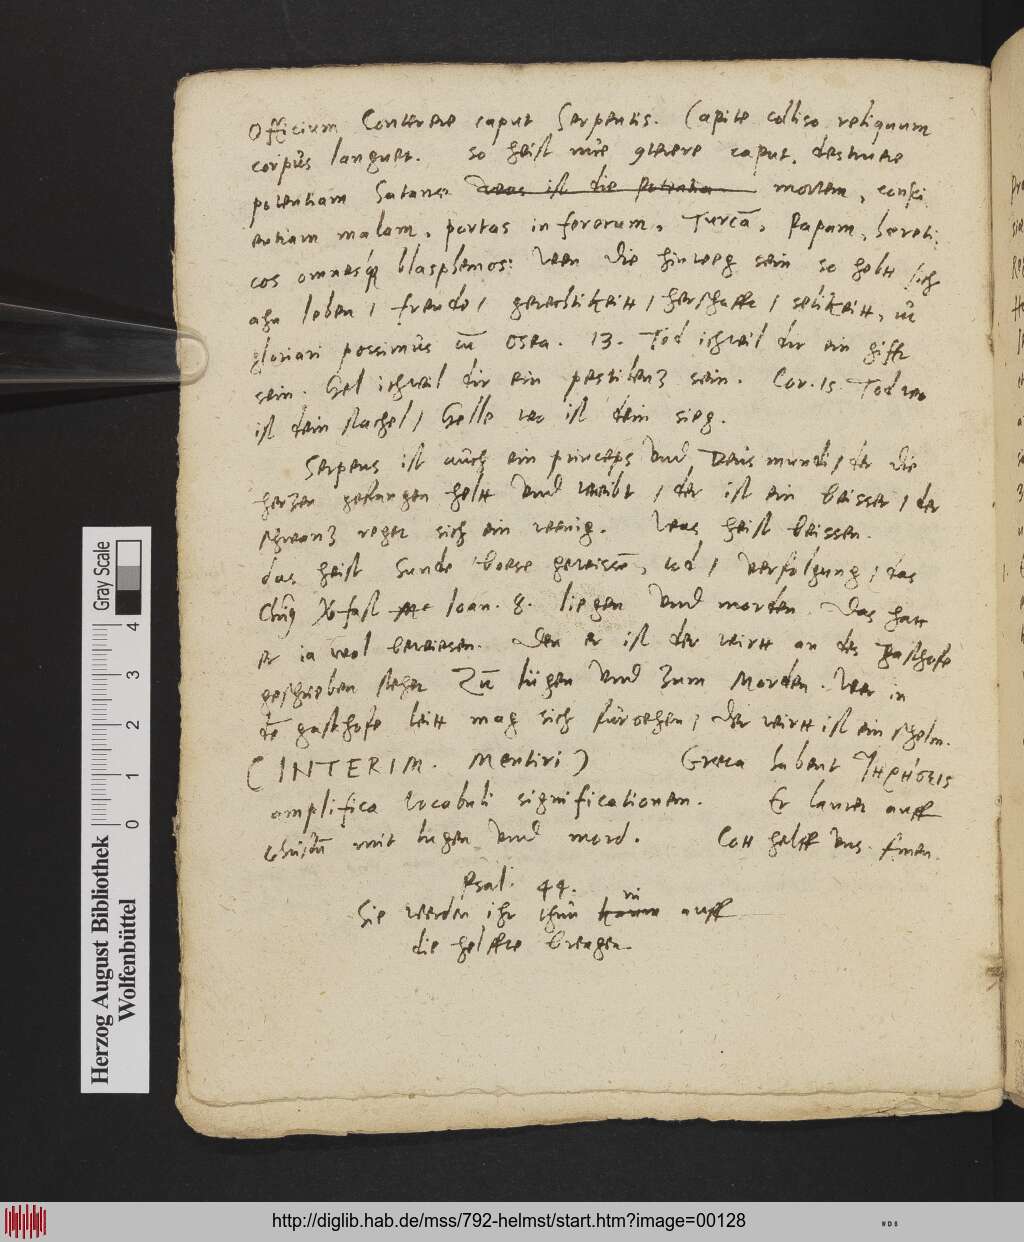 Officium Conterere caput Serpentis. Capite colliso reliquum
corpus languet. so heist nue conterere caput, destruere
potentiam Satanae was ist die Potentia mortem, consci
entiam malam, portas inferorum, Turcā, Papam, hæreti:
cos omnesq blasphemos: Wen die hinweg sein so hebtt sich
ahn leben / freude / gerechtikeitt / herschafft / selikeitt, ut
gloriari possimus cū Osea. 13. Tod ich wil dir ein gifft
sein. Hel ich wil dir ein pestilenz sein. Cor. 15 Tod wo
ist dein stachel / Helle wo ist dein sieg.
Serpens ist auch ein princeps Und Deus mundi / der die
herzen gefangen heltt Und treibt / der ist ein beisser / der
schwanz reget sich ein wenig. Was heist beissen.
das heist Sunde boese gewissē, tod / Verfolgung / das
Joan. 8. liegen Und morden Das hatt
er ia wol beweisen. Den er ist der wirtt an des gasthofe
geschrieben stehet Zū lügen Und Zum Morden. Wer in
dē gasthofe leitt mag sich fürsehen / Der wirtt ist ein schelm.
(INTERIM. Mentiri) Greca habent
amplifica Vocabuli significationem. Er lauret auff
Christū mit lugen Und mord. Gott helff Uns Amen.
Psal. 44.
Sie werden ihr thun kaum in auff
die helffte brengen.
Herzog August Bibliothek
Wolfenbüttel
Gray Scale
0 1 2 3 4
http://diglib.hab.de/mss/792-helmst/start.htm?image=00128